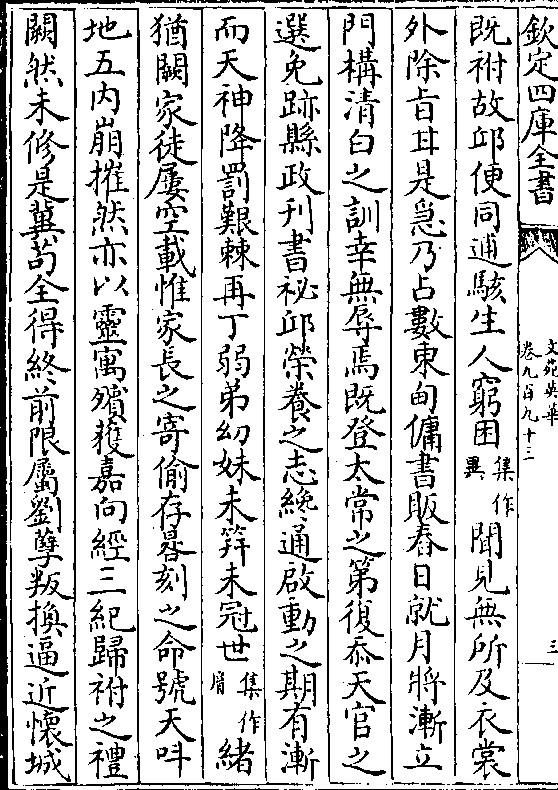 欽定四庫全書
文苑英華
卷九百九十三
三
既祔故邱便同逋駭生人窮困集作異聞見無所及衣裳
外除旨甘是急乃占數東甸傭書販舂日就月將漸立
門構清白之訓幸無辱焉既登太常之第復忝天官之
選免跡縣政刊書祕邱榮養之志纔通啟動之期有漸
而天神降罰艱棘再丁弱弟幼妹未笄未冠世集作胄緒
猶闕家徒屢空載惟家長之寄偷存晷刻之命號天叫
地五内崩摧然亦以靈寓殯𦾔獲嘉向經三紀歸祔之禮
闕然未修是冀茍全得終前限屬劉孽叛換逼近懷城